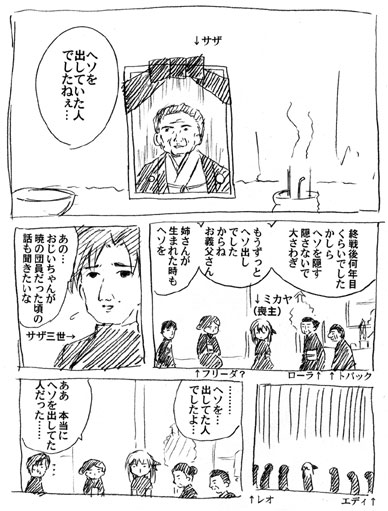 ↓サザ
ヘソを
出していた人
でしたねぇ…
終戦後何年目
くらいでした
かしら
ヘソを隠す
隠さないで
大さわぎ
もうずっと
ヘソ出し
でした
からね
お義父さん
姉さんが
生まれた時も
ヘソを
↓ミカヤ
(喪主)
↑フリーダ?
ローラ↑
↑トバック
あの…
おじいちゃんが
暁の団員だった頃の
話も聞きたいな
サザ三世→
↑レオ
エディ↑
………
……ヘソを
出してた人
でしたよ…
ああ 本当に
ヘソを出してた
人だった……
…